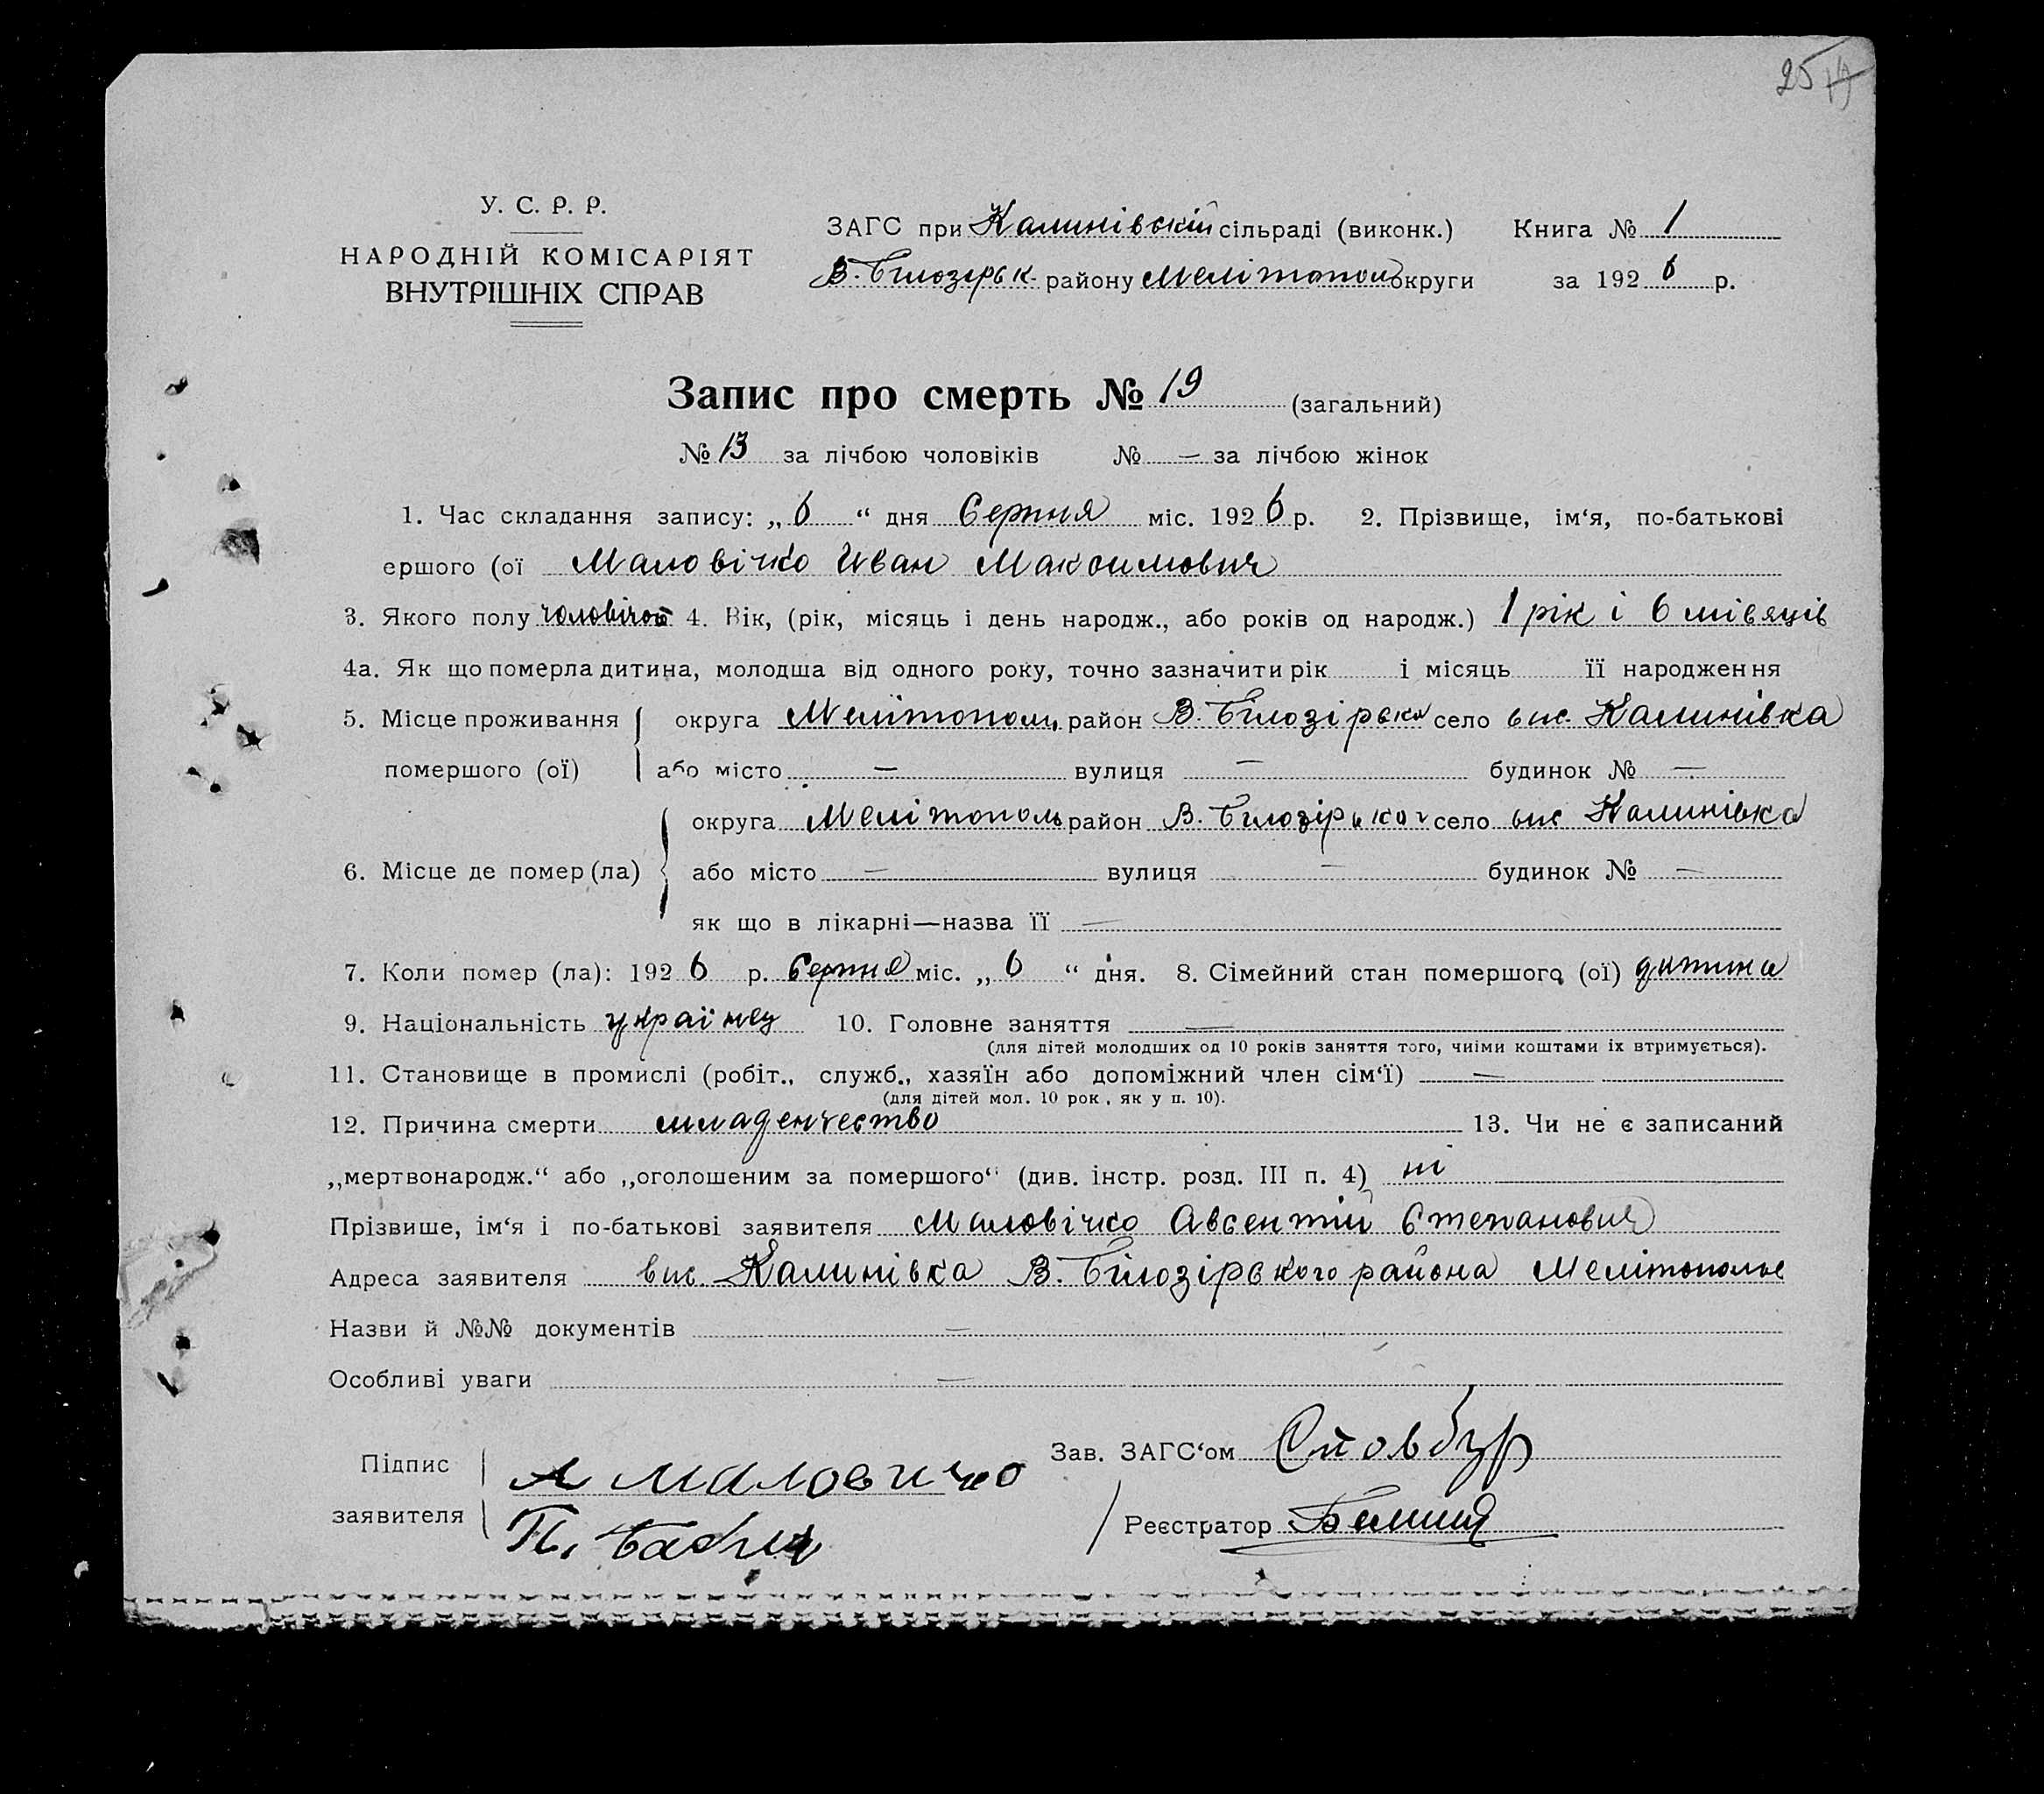 25
У. С. Р. Р.
НАРОДНІЙ КОМІСАРІЯТ
ВНУТРІШНІХ СПРАВ
ЗАГС при Калинівскій сільраді (виконк.) Книга № 1
В. Білозірськ. району Мелітополь округи за 1926 р.
Запис про смерть № 19 (загальний)
№ 13 за лічбою чоловіків № — за лічбою жінок
1. Час складання запису: „ 6 “ дня Серпня міс. 1926 р. 2. Прізвище, ім‘я, по-батькові
ершого (ої Маловічко Иван Максимович
3. Якого полу чоловічої 4. Вік, (рік, місяць і день народж., або років од народж.) 1 рік і 6 місяців
4а. Як що померла дитина, молодша від одного року, точно зазначити рік і місяць її народження
5. Місце проживання округа Мелітополь район В. Білозірськ село вис. Калинівка
помершого (ої) або місто — вулиця — будинок № —
округа Мелітополь район В. Білозірськ село вис Калинівка
6. Місце де помер (ла) або місто — вулиця — будинок № —
як що в лікарні—назва її —
7. Коли помер (ла): 1926 р. Серпня міс. „ 6 “ дня. 8. Сімейний стан помершого (ої) дитина
9. Національність українец 10. Головне заняття —
(для дітей молодших од 10 років заняття того, чиїми коштами їх втримується).
11. Становище в промислі (робіт., служб., хазяїн або допоміжний член сім‘ї) —
(для дітей мол. 10 рок, як у п. 10).
12. Причина смерти младенчество 13. Чи не є записаний
„мертвонародж.“ або „оголошеним за помершого“ (див. інстр. розд. III п. 4) ні
Прізвише, ім‘я і по-батькові заявителя Маловічко Авсентий Степанович
Адреса заявителя вис. Калинівка В. Білозірського района Мелітополье
Назви й №№ документів —
Особливі уваги —
Зав. ЗАГС‘ом Стовбур
Підпис А Маловичко
заявителя П.
Реєстратор